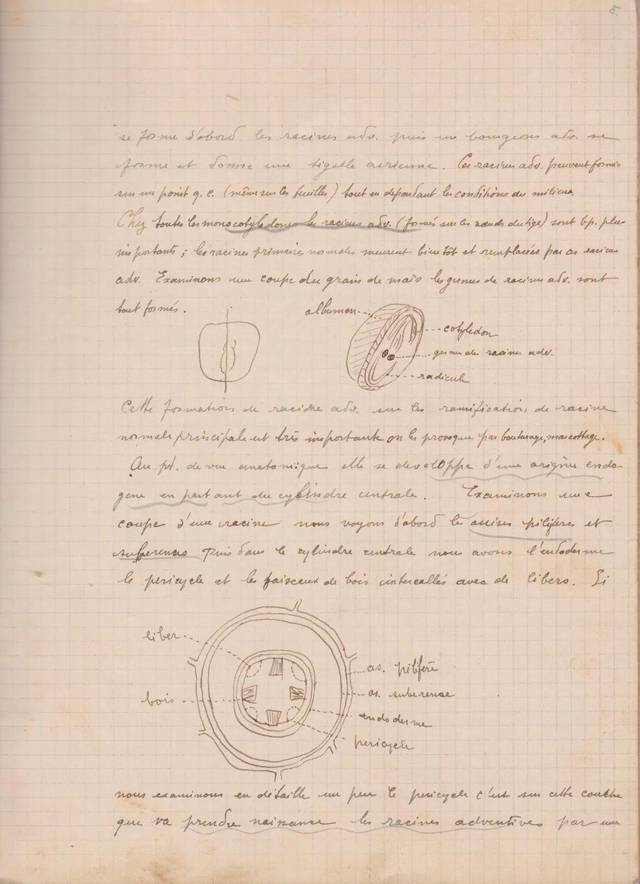 5.
se forme d'abord les racines adv. puis un bourgeons adv. se
forme et donne une tigelle aerienne. Ces racines adv. peuvent former
sur un point q.c. (même sur les feuilles) tout en dependant les conditions du milieux
Chez toutes les monocotyledones les racines adv. (formés sur les nœuds du tige) sont bp. plus
importants; les racines primaires normales meurent bientôt et remplacées par ces racines
adv. Examinons une coupe du grain de maïs les germes de racines adv. sont
tout formés.
albumen
cotyledon
germe de racines adv.
radicule
Cette formations de racine adv. sur les ramification de racine
normale principale est très importante on les provoque par bouturage, marcottage.
Au pt. de vue anatomique elle se developpe d'une origine endo-
gene en partant du cylindre centrale. Examinons une
coupe d'une racine nous voyons d'abord les assises pilifères et
subereuses Puis dans le cylindre centrale nous avons l'endoderme
le pericycle et les faisceux de bois intercallés avec de libers. Si
liber
bois
as. pilifère
as. subereuse
endoderme
pericycle
nous examinons en détaille un peu le pericycle c'est sur cette couche
que va prendre naissance les racines adventives par une